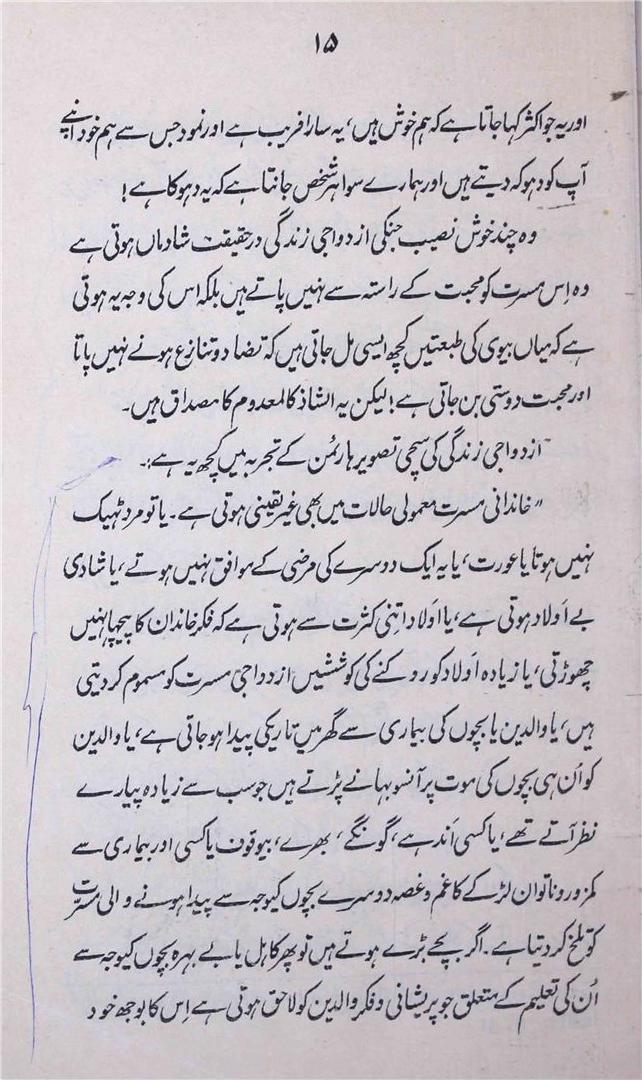 ۱۵
اور یہ جو اکثر کہا جاتا ہے کہ ہم خوش ہیں، یہ سارا فریب ہے اور نمود جس سے ہم خود اپنے
آپ کو دہوکہ دیتے ہیں اور ہمارے سوا ہر شخص جانتا ہے کہ یہ دہوکا ہے!
وہ چند خوش نصیب جنکی ازدواجی زندگی درحقیقت شادماں ہوتی ہے
وہ اِس مسرت کو محبت کے راستہ سے نہیں پاتے ہیں بلکہ اس کی وجہ یہ ہوتی
ہے کہ میاں بیوی کی طبعتیں کچھ ایسی مل جاتی ہیں کہ تضاد و تنازع ہونے نہیں پاتا
اور محبت دوستی بن جاتی ہے! لیکن یہ الشاذ کالمعدوم کا مصداق ہیں۔
ازدواجی زندگی کی سچی تصویر ہارٹمن کے تجربہ میں کچھ یہ ہے:۔
”خاندانی مسرت معمولی حالات میں بھی غیر یقینی ہوتی ہے۔ یا تو مرد ٹہیک
نہیں ہوتا یا عورت، یا یہ ایک دوسرے کی مرضی کے موافق نہیں ہوتے، یا شادی
بے اَولاد ہوتی ہے، یا اَولاد اتنی کثرت سے ہوتی ہے کہ فکر خاندان کا پیچہا نہیں
چھوڑتی، یا زیادہ اَولاد کو روکنے کی کوششیں ازدواجی مسرت کو مسموم کر دیتی
ہیں، یا والدین یا بچوں کی بیماری سے گھر میں تاریکی پیدا ہو جاتی ہے، یا والدین
کو اُن ہی بچوں کی موت پر آنسو بہانے پڑتے ہیں جو سب سے زیادہ پیارے
نظر آتے تھے، یا کسی اندہے، گونگے، بھرے، بیوقوف یا کسی اور بیماری سے
کمزور و ناتوان لڑکے کا غم و غصہ دوسرے بچوں کیوجہ سے پیدا ہونے والی مسرت
کو تلخ کر دیتا ہے۔ اگر بچے بڑے ہوتے ہیں تو پھر کاہل یا بے بہرہ بچوں کیوجہ سے
اُن کی تعلیم کے متعلق جو پریشانی و فکر والدین کو لاحق ہوتی ہے اِس کا بوجھ خود